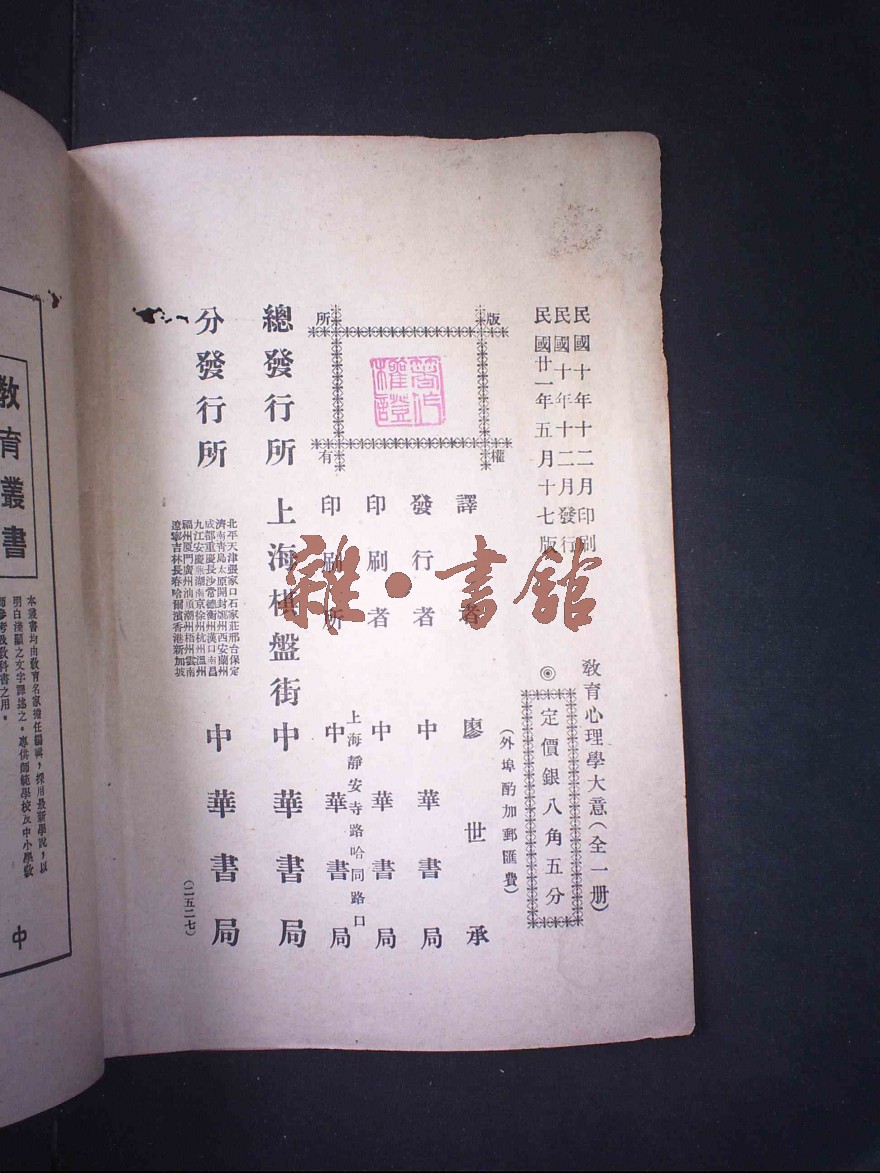 民國十年十二月印刷
民國十年十二月發行
民國廿一年五月十七版
教育心理學大意（全一册）
◎定價銀八角五分
（外埠酌加郵匯費）
版權所有
著作權證
譯者 廖世承
發行者 中華書局
印刷者 中華書局
上海靜安寺路哈同路口
印刷所 中華書局
總發行所 上海棋盤街 中華書局
分發行所
北平天津張家口石家莊邢台保定
濟南青島太原開封鄭州西安蘭州
成都重慶長沙常德衡州漢口南昌
九江安慶蕪湖南京徐州杭州溫州
福州厦門廣州汕頭潮州梧州雲南
遼寧吉林長春哈爾濱香港新加坡
中華書局
（二五二七）
雜·書館
教育叢書
本叢書均由教育名家擔任編輯，採用最新學說，以
明白淺顯之文字譯述之。專供師範學校及中小學教
師參考及教科書之用。
中